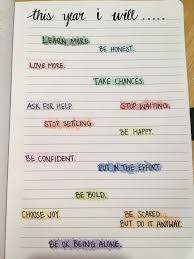 this year i will .....
LEARN MORE.
BE HONEST.
LOVE MORE.
TAKE CHANCES.
ASK FOR HELP.
STOP WAITING.
STOP SETTLING.
BE HAPPY.
BE CONFIDENT.
PUT IN THE EFFORT
BE BOLD.
CHOOSE JOY.
BE SCARED...
BUT DO IT ANYWAY.
BE OK BEING ALONE.